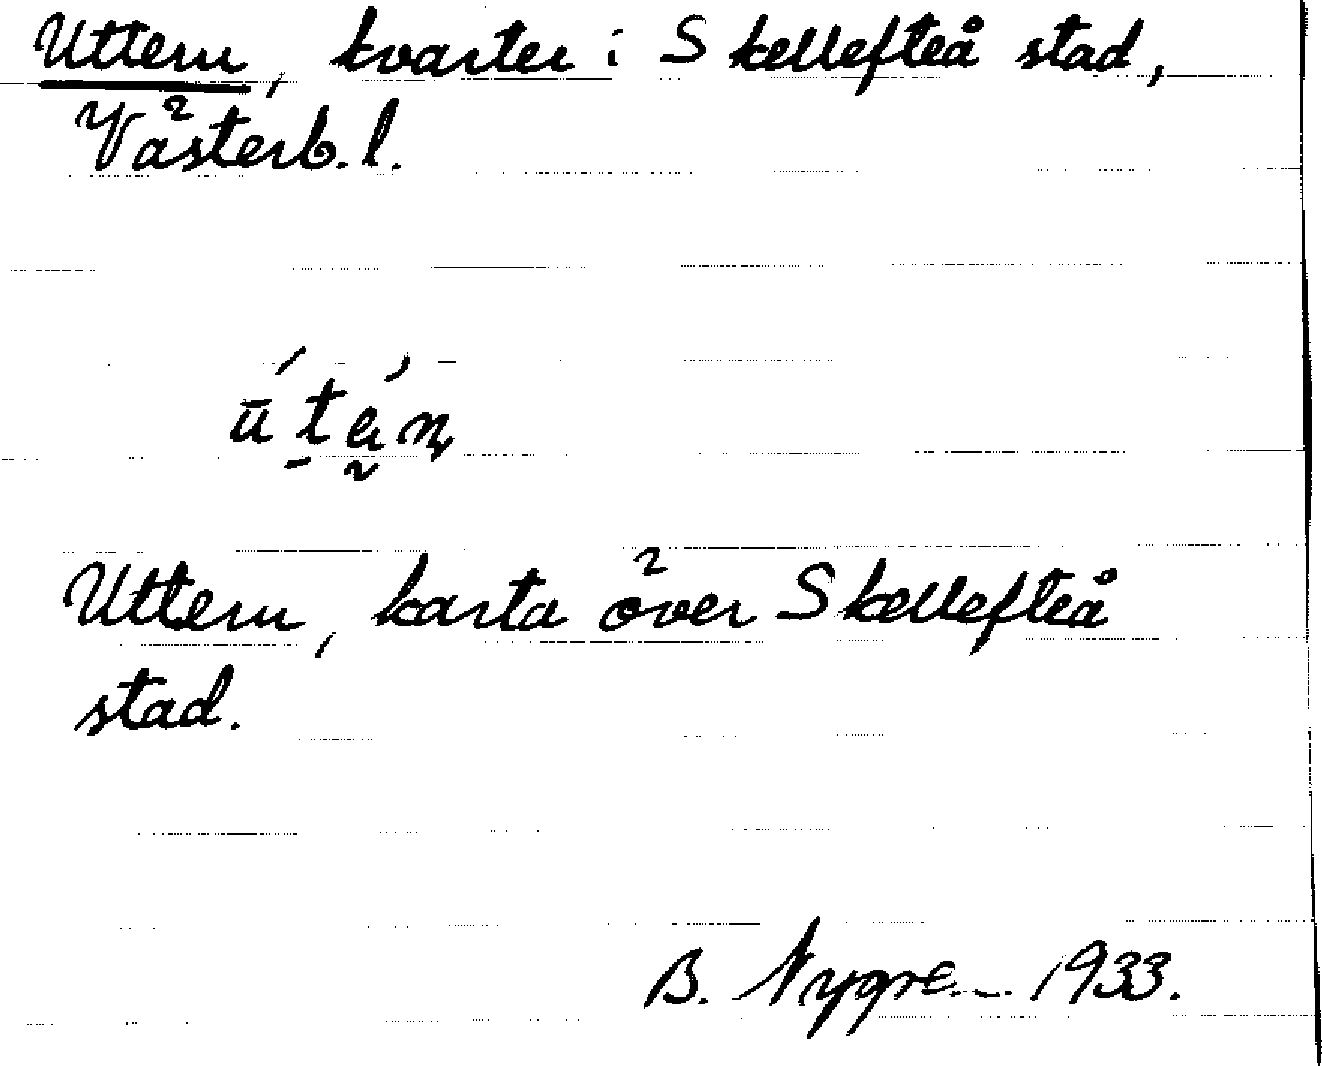 Uttern, kvarter i Skellefteå stad,
Västerb. l.
Uttern, karta över Skellefteå
stad.
B. Nygren 1933.